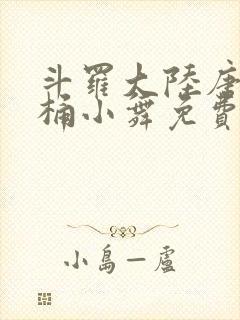 斗羅大陸唐
桶小舞免費
小島一盧